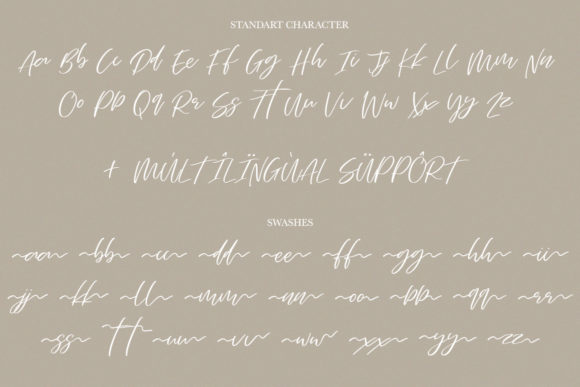 STANDART CHARACTER
Aa Bb Cc Dd Ee Ff Gg Hh Ii Jj Kk Ll Mm Nn
Oo Pp Qq Rr Ss Tt Uu Vv Ww Xx Yy Zz
+ MÚLTÎLÏNGÙAL SÜPPÔRT
SWASHES
aa bb cc dd ee ff gg hh ii
jj kk ll mm nn oo pp qq rr
ss tt uu vv ww xx yy zz